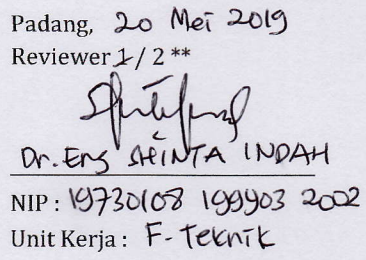 Padang, 20 Mei 2019
Reviewer 1 / 2 **
Dr. Eng SHINTA INDAH
NIP : 19730108 199903 2002
Unit Kerja : F. Teknik